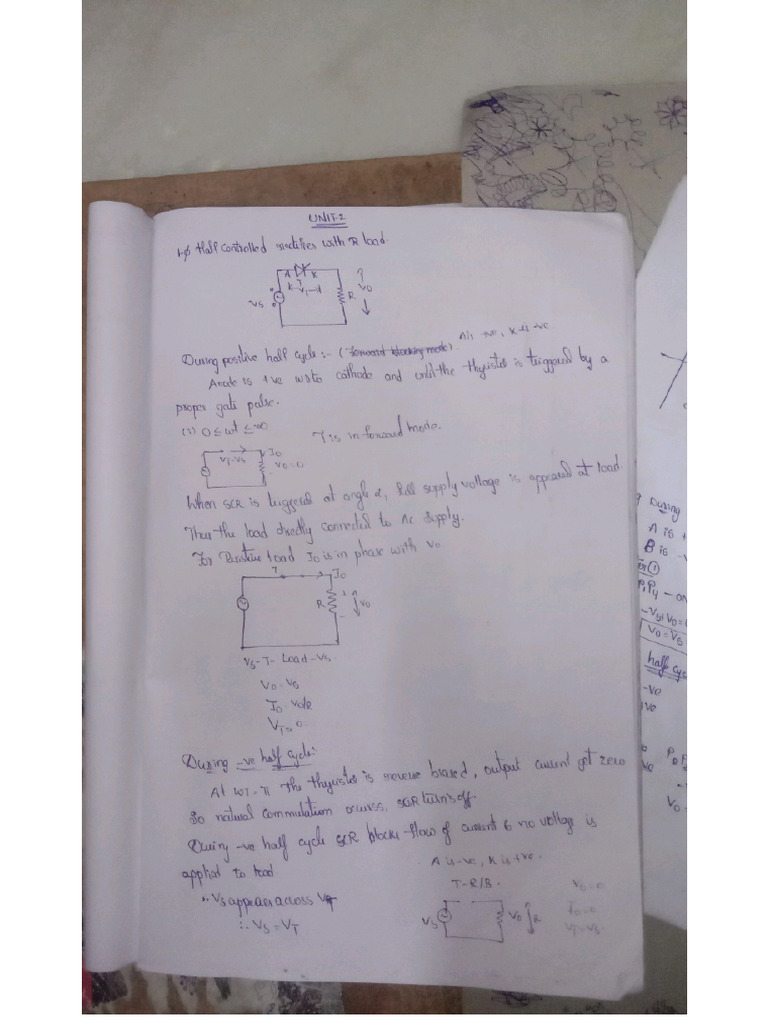 UNIT-2
1-φ Half controlled rectifier with R load.
A K
T
k-V1-A
Vs
R
VO
A is +ve, K is -ve.
During positive half cycle:- (forward blocking mode)
Anode is +ve w.r.to cathode and until the thyristor is triggered by a
proper gate pulse.
(i) 0 ≤ wt ≤ ∞
T is in forward mode.
VT=Vs
IO
VO=0
When SCR is triggered at angle α, full supply voltage is appeared at load.
Thus the load directly connected to Ac supply.
For Resistive Load IO is in phase with VO
T
IO
R
VO
Vs-T- Load-Vs.
VO=Vs
IO = Vo/R
VT=0
During -ve half cycle:
At WT=π the thyristor is reverse biased, output current get zero
So natural commutation occurs, SCR turns off.
During -ve half cycle SCR blocks flow of current & no voltage is
applied to load.
A is -ve, K is +ve.
T-R/B.
∴ Vs appears across VT
∴ Vs = VT
Vs
VO
R
VO=0
IO=0
VT=Vs
During
A is +
B is -v
P1P4 - on
-Vs+VO=
VO=Vs
half cyc
-ve
+ve